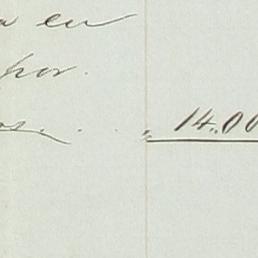 a en
por.
os. . . „ 14.„00